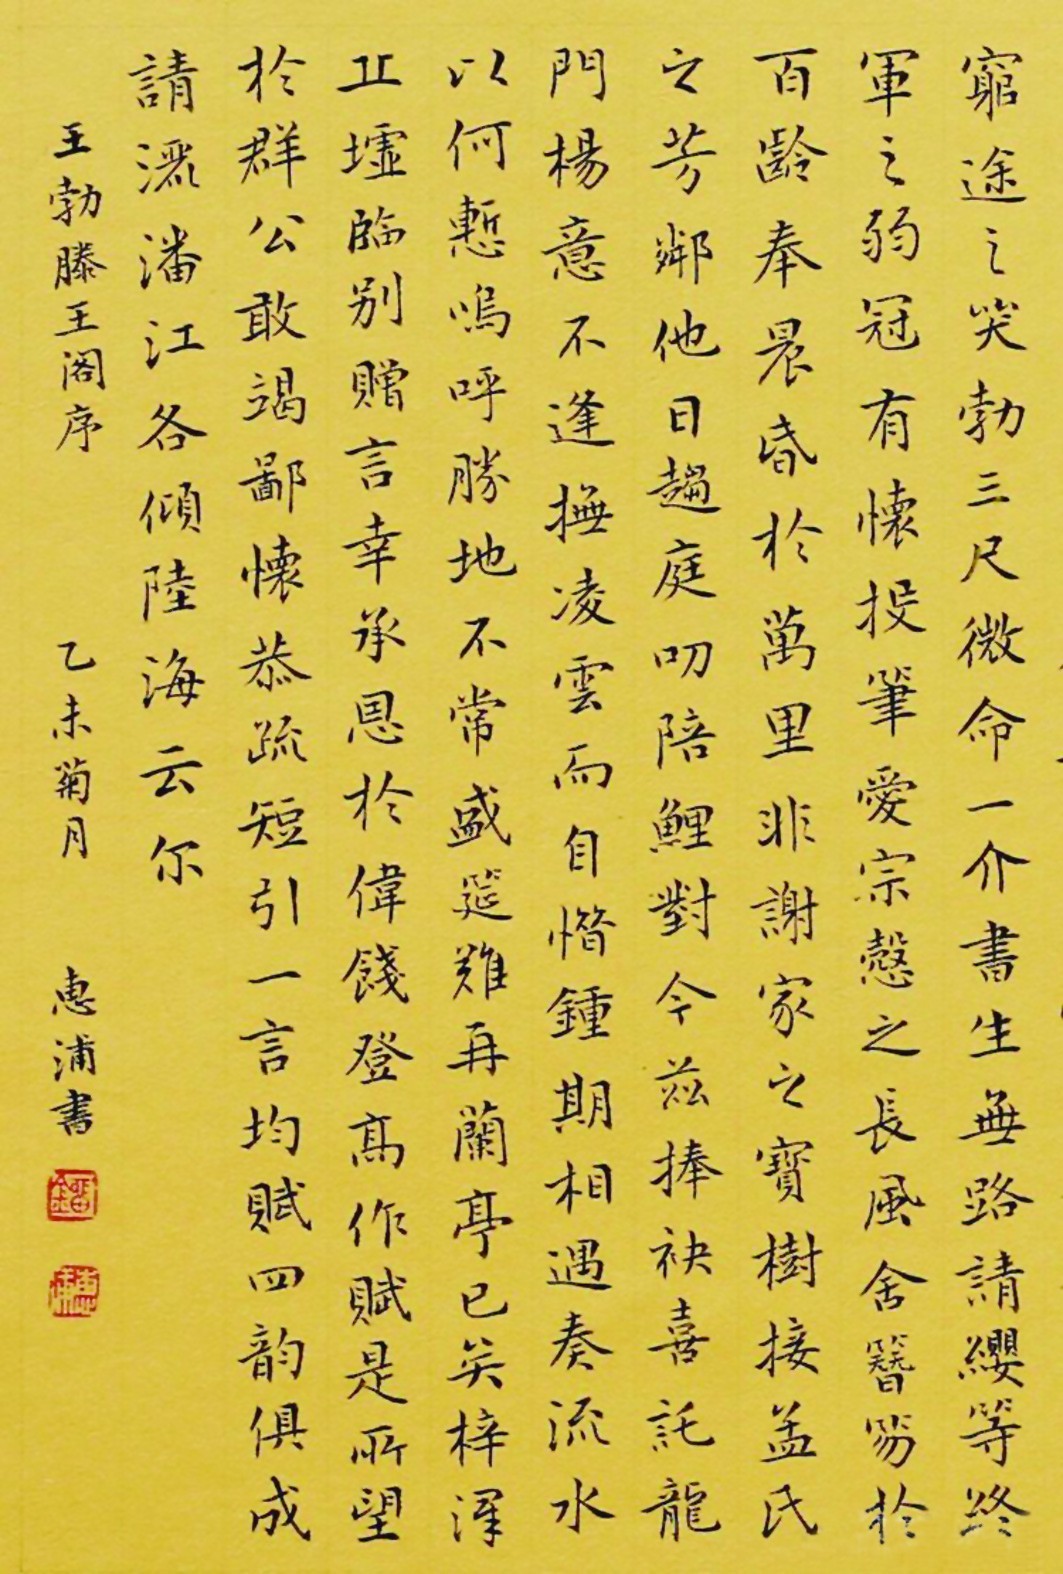 窮途之笑勃三尺微命一介書生無路請纓等終
軍之弱冠有懷投筆愛宗慤之長風舍簪笏於
百齡奉晨昏於萬里非謝家之寶樹接孟氏
之芳鄰他日趨庭叨陪鯉對今茲捧袂喜託龍
門楊意不逢撫凌雲而自惜鍾期相遇奏流水
以何慙嗚呼勝地不常盛筵難再蘭亭已矣梓澤
丘墟臨別贈言幸承恩於偉餞登高作賦是所望
於群公敢竭鄙懷恭疏短引一言均賦四韵俱成
請灑潘江各傾陸海云尔
王勃滕王阁序 乙未菊月 惠浦書